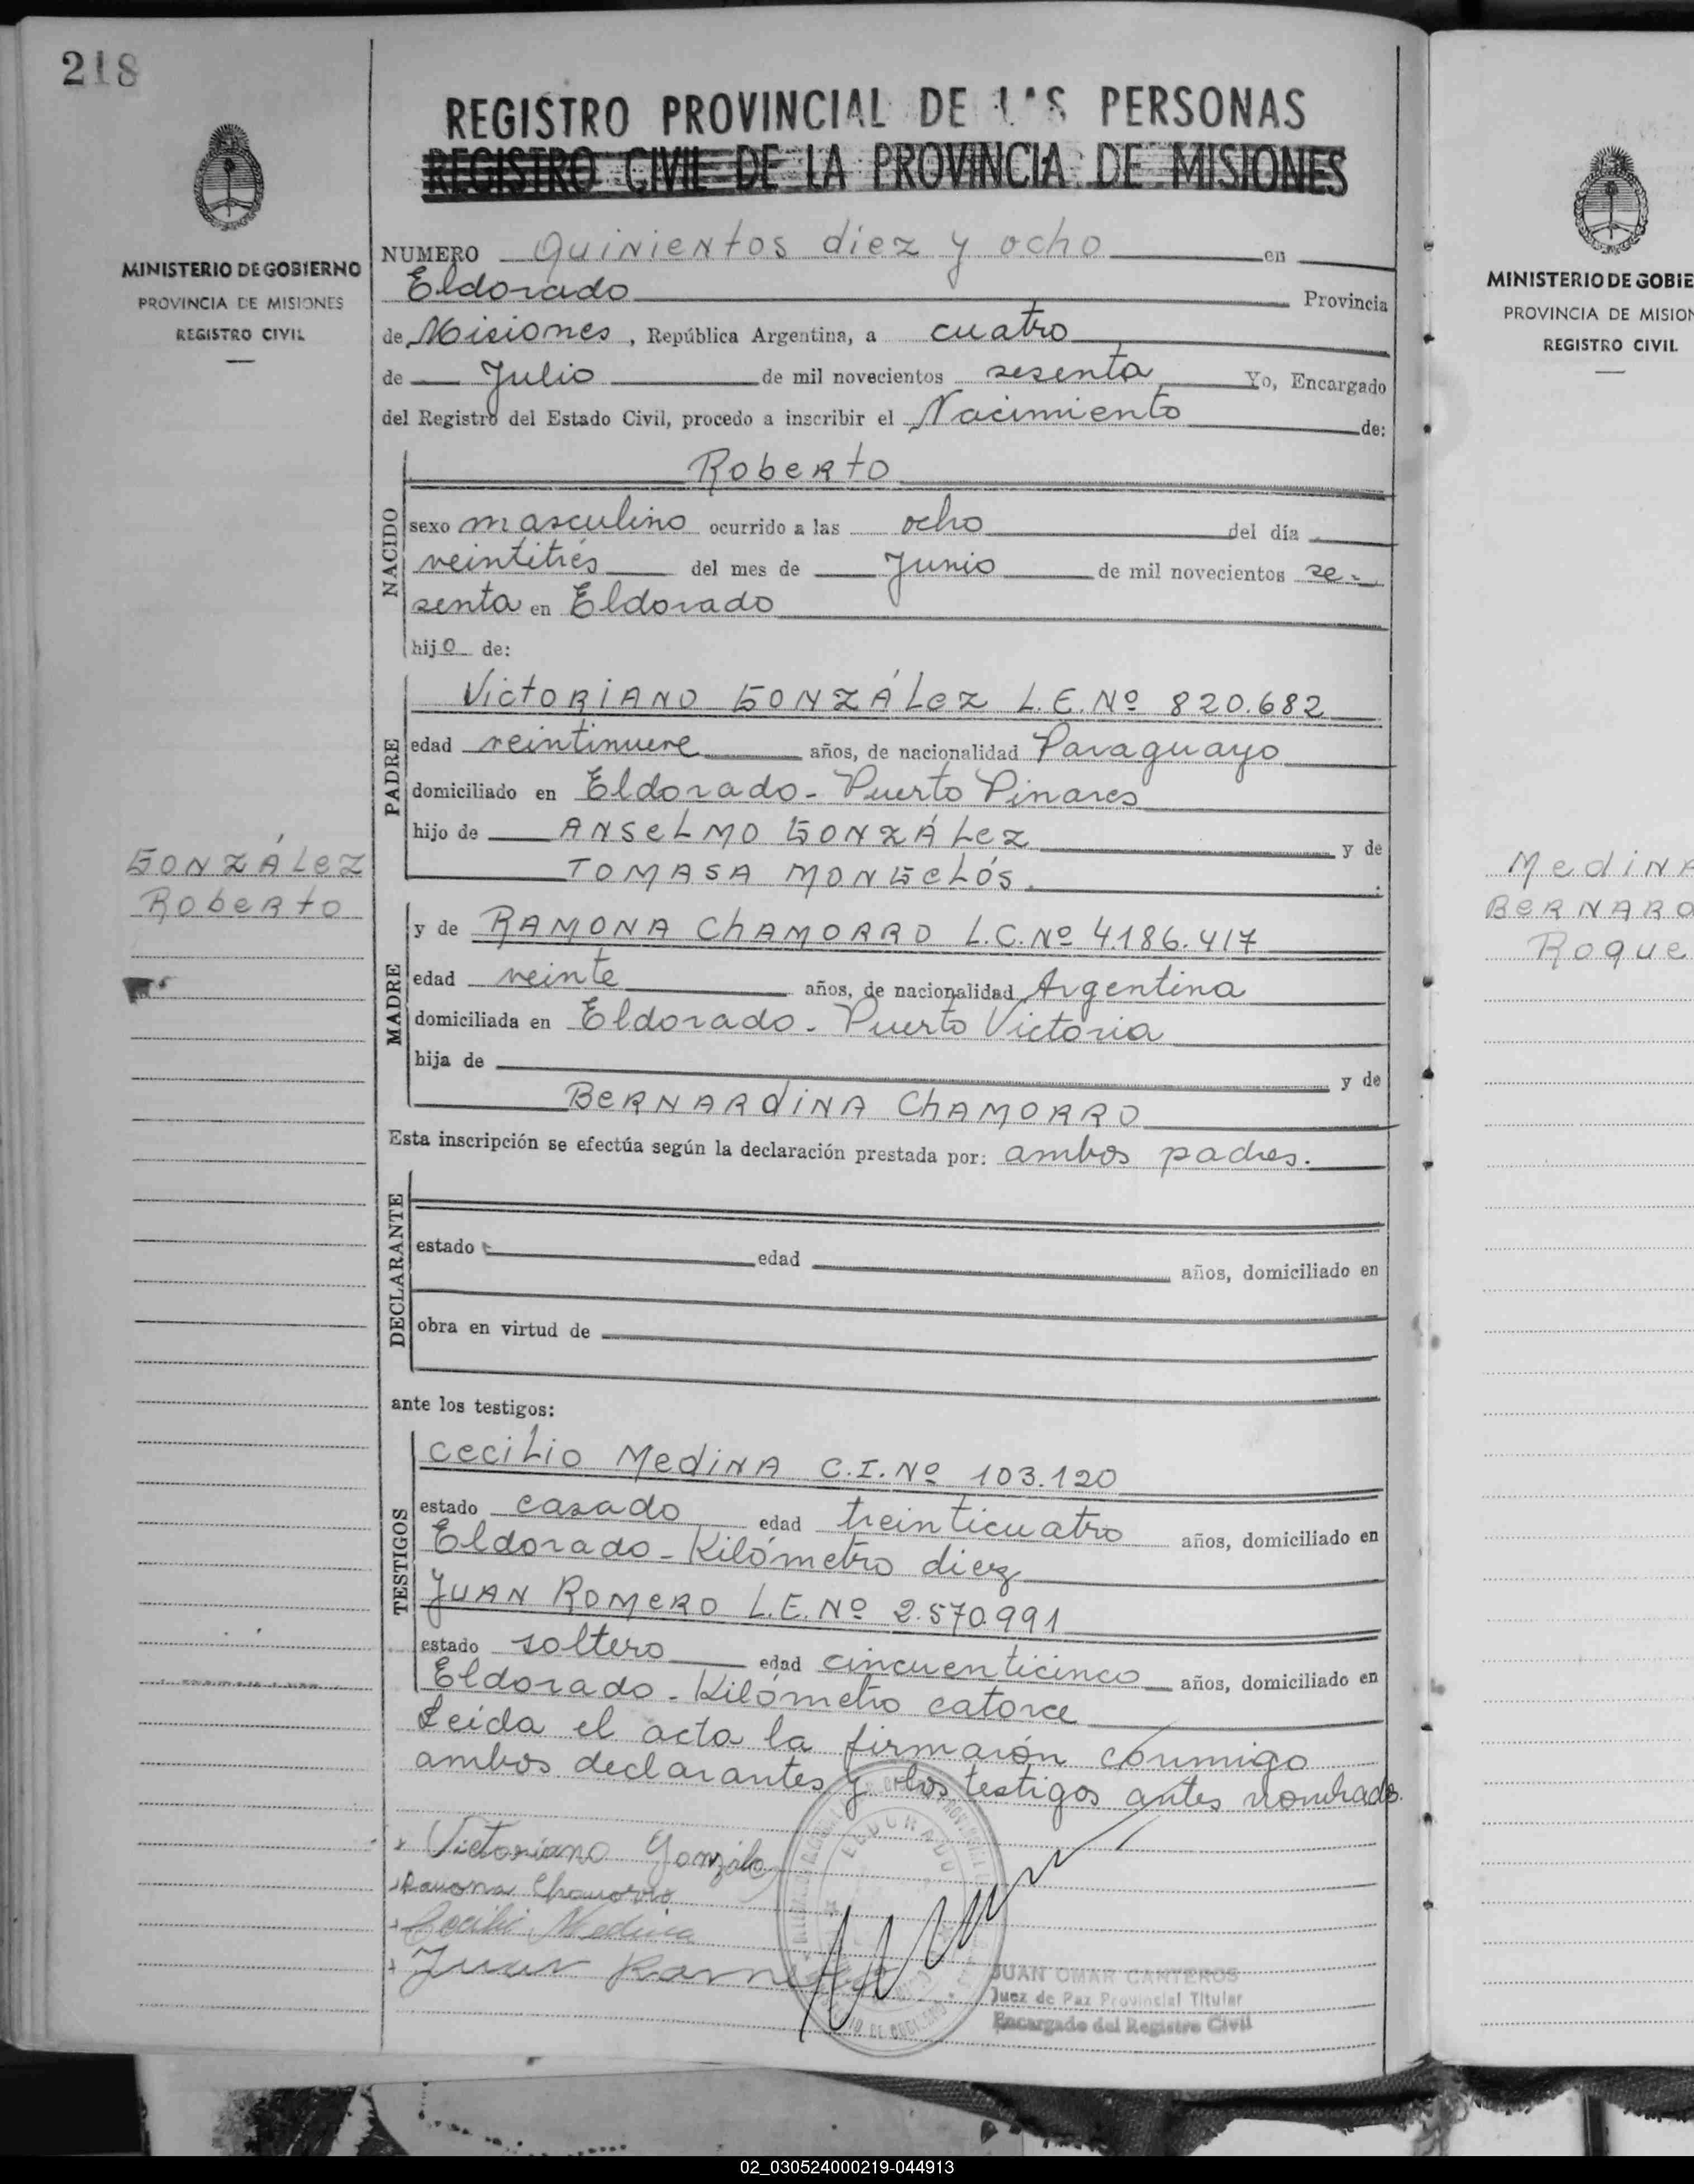 218
REGISTRO PROVINCIAL DE L'S PERSONAS
REGISTRO CIVIL DE LA PROVINCIA DE MISIONES
MINISTERIO DE GOBIERNO
PROVINCIA DE MISIONES
REGISTRO CIVIL
NUMERO Quinientos diez y ocho en
Eldorado Provincia
de Misiones, República Argentina, a cuatro
de Julio de mil novecientos sesenta Yo, Encargado
del Registro del Estado Civil, procedo a inscribir el Nacimiento de:
NACIDO
Roberto
sexo masculino ocurrido a las ocho del día
veintitrés del mes de Junio de mil novecientos se-
senta en Eldorado
hijo de:
PADRE
Victoriano González L.E. Nº 820.682
edad veintinueve años, de nacionalidad Paraguayo
domiciliado en Eldorado - Puerto Pinares
hijo de Anselmo González y de
Tomasa Mongelós.
González
Roberto
MADRE
y de Ramona Chamorro L.C. Nº 4.186.417
edad veinte años, de nacionalidad Argentina
domiciliada en Eldorado - Puerto Victoria
hija de y de
Bernardina Chamorro
Esta inscripción se efectúa según la declaración prestada por: ambos padres.
DECLARANTE
estado edad años, domiciliado en
obra en virtud de
ante los testigos:
TESTIGOS
Cecilio Medina C.I. Nº 103.120
estado casado edad treinticuatro años, domiciliado en
Eldorado - Kilómetro diez
Juan Romero L.E. Nº 2.570.991
estado soltero edad cincuenticinco años, domiciliado en
Eldorado - Kilómetro catorce
Leída el acta la firmarón conmigo
ambos declarantes y los testigos antes nombrados.
Victoriano González
Ramona Chamorro
Cecilio Medina
Juan Romero
ELDORADO
JUAN OMAR CANTEROS
Juez de Paz Provincial Titular
Encargado del Registro Civil
MINISTERIO DE GOBIE
PROVINCIA DE MISION
REGISTRO CIVIL
Medina
Roque
02_030524000219-044913